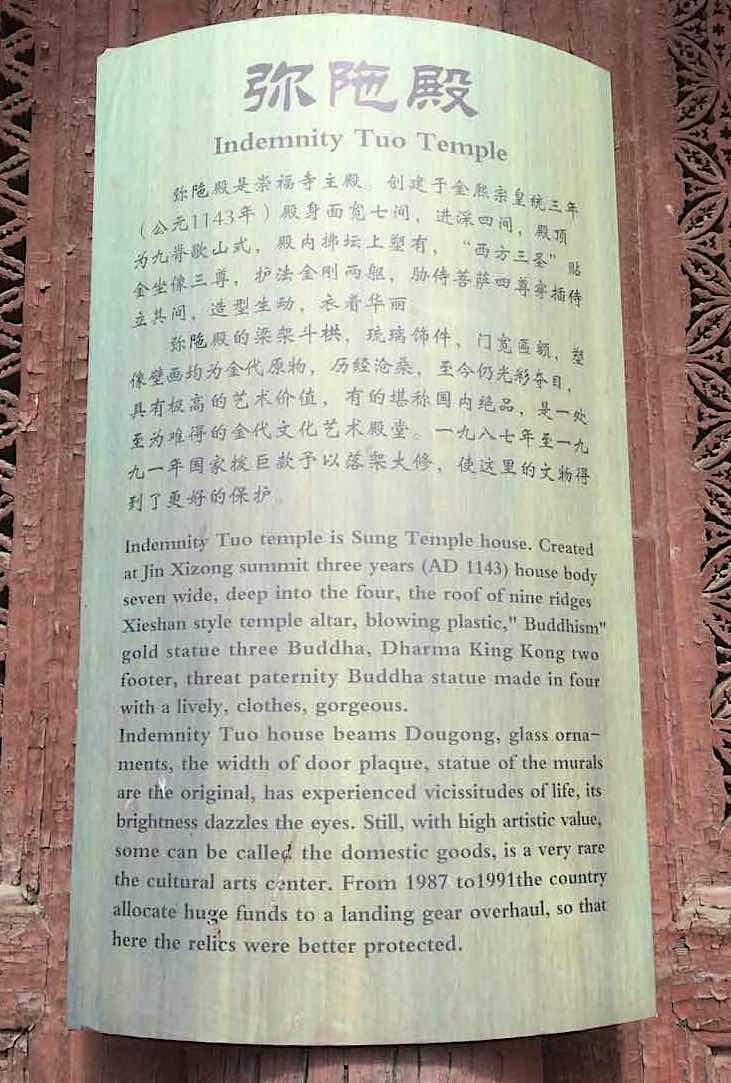 弥陁殿
Indemnity Tuo Temple
弥陁殿是崇福寺主殿。创建于金熙宗皇统三年
（公元1143年）殿身面宽七间，进深四间，殿顶
为九脊歇山式，殿内拂坛上塑有，“西方三圣”贴
金坐像三尊，护法金刚两躯，胁侍菩萨四尊穿插侍
立其间，造型生动，衣着华丽。
弥陁殿的梁架斗栱，琉璃饰件，门宽匾额，塑
像壁画均为金代原物，历经沧桑，至今仍光彩夺目，
具有极高的艺术价值，有的堪称国内绝品，是一处
至为难得的金代文化艺术殿堂。一九八七年至一九
九一年国家拨巨款予以落架大修，使这里的文物得
到了更好的保护。
Indemnity Tuo temple is Sung Temple house. Created
at Jin Xizong summit three years (AD 1143) house body
seven wide, deep into the four, the roof of nine ridges
Xieshan style temple altar, blowing plastic," Buddhism"
gold statue three Buddha, Dharma King Kong two
footer, threat paternity Buddha statue made in four
with a lively, clothes, gorgeous.
Indemnity Tuo house beams Dougong, glass orna-
ments, the width of door plaque, statue of the murals
are the original, has experienced vicissitudes of life, its
brightness dazzles the eyes. Still, with high artistic value,
some can be called the domestic goods, is a very rare
the cultural arts center. From 1987 to1991the country
allocate huge funds to a landing gear overhaul, so that
here the relics were better protected.